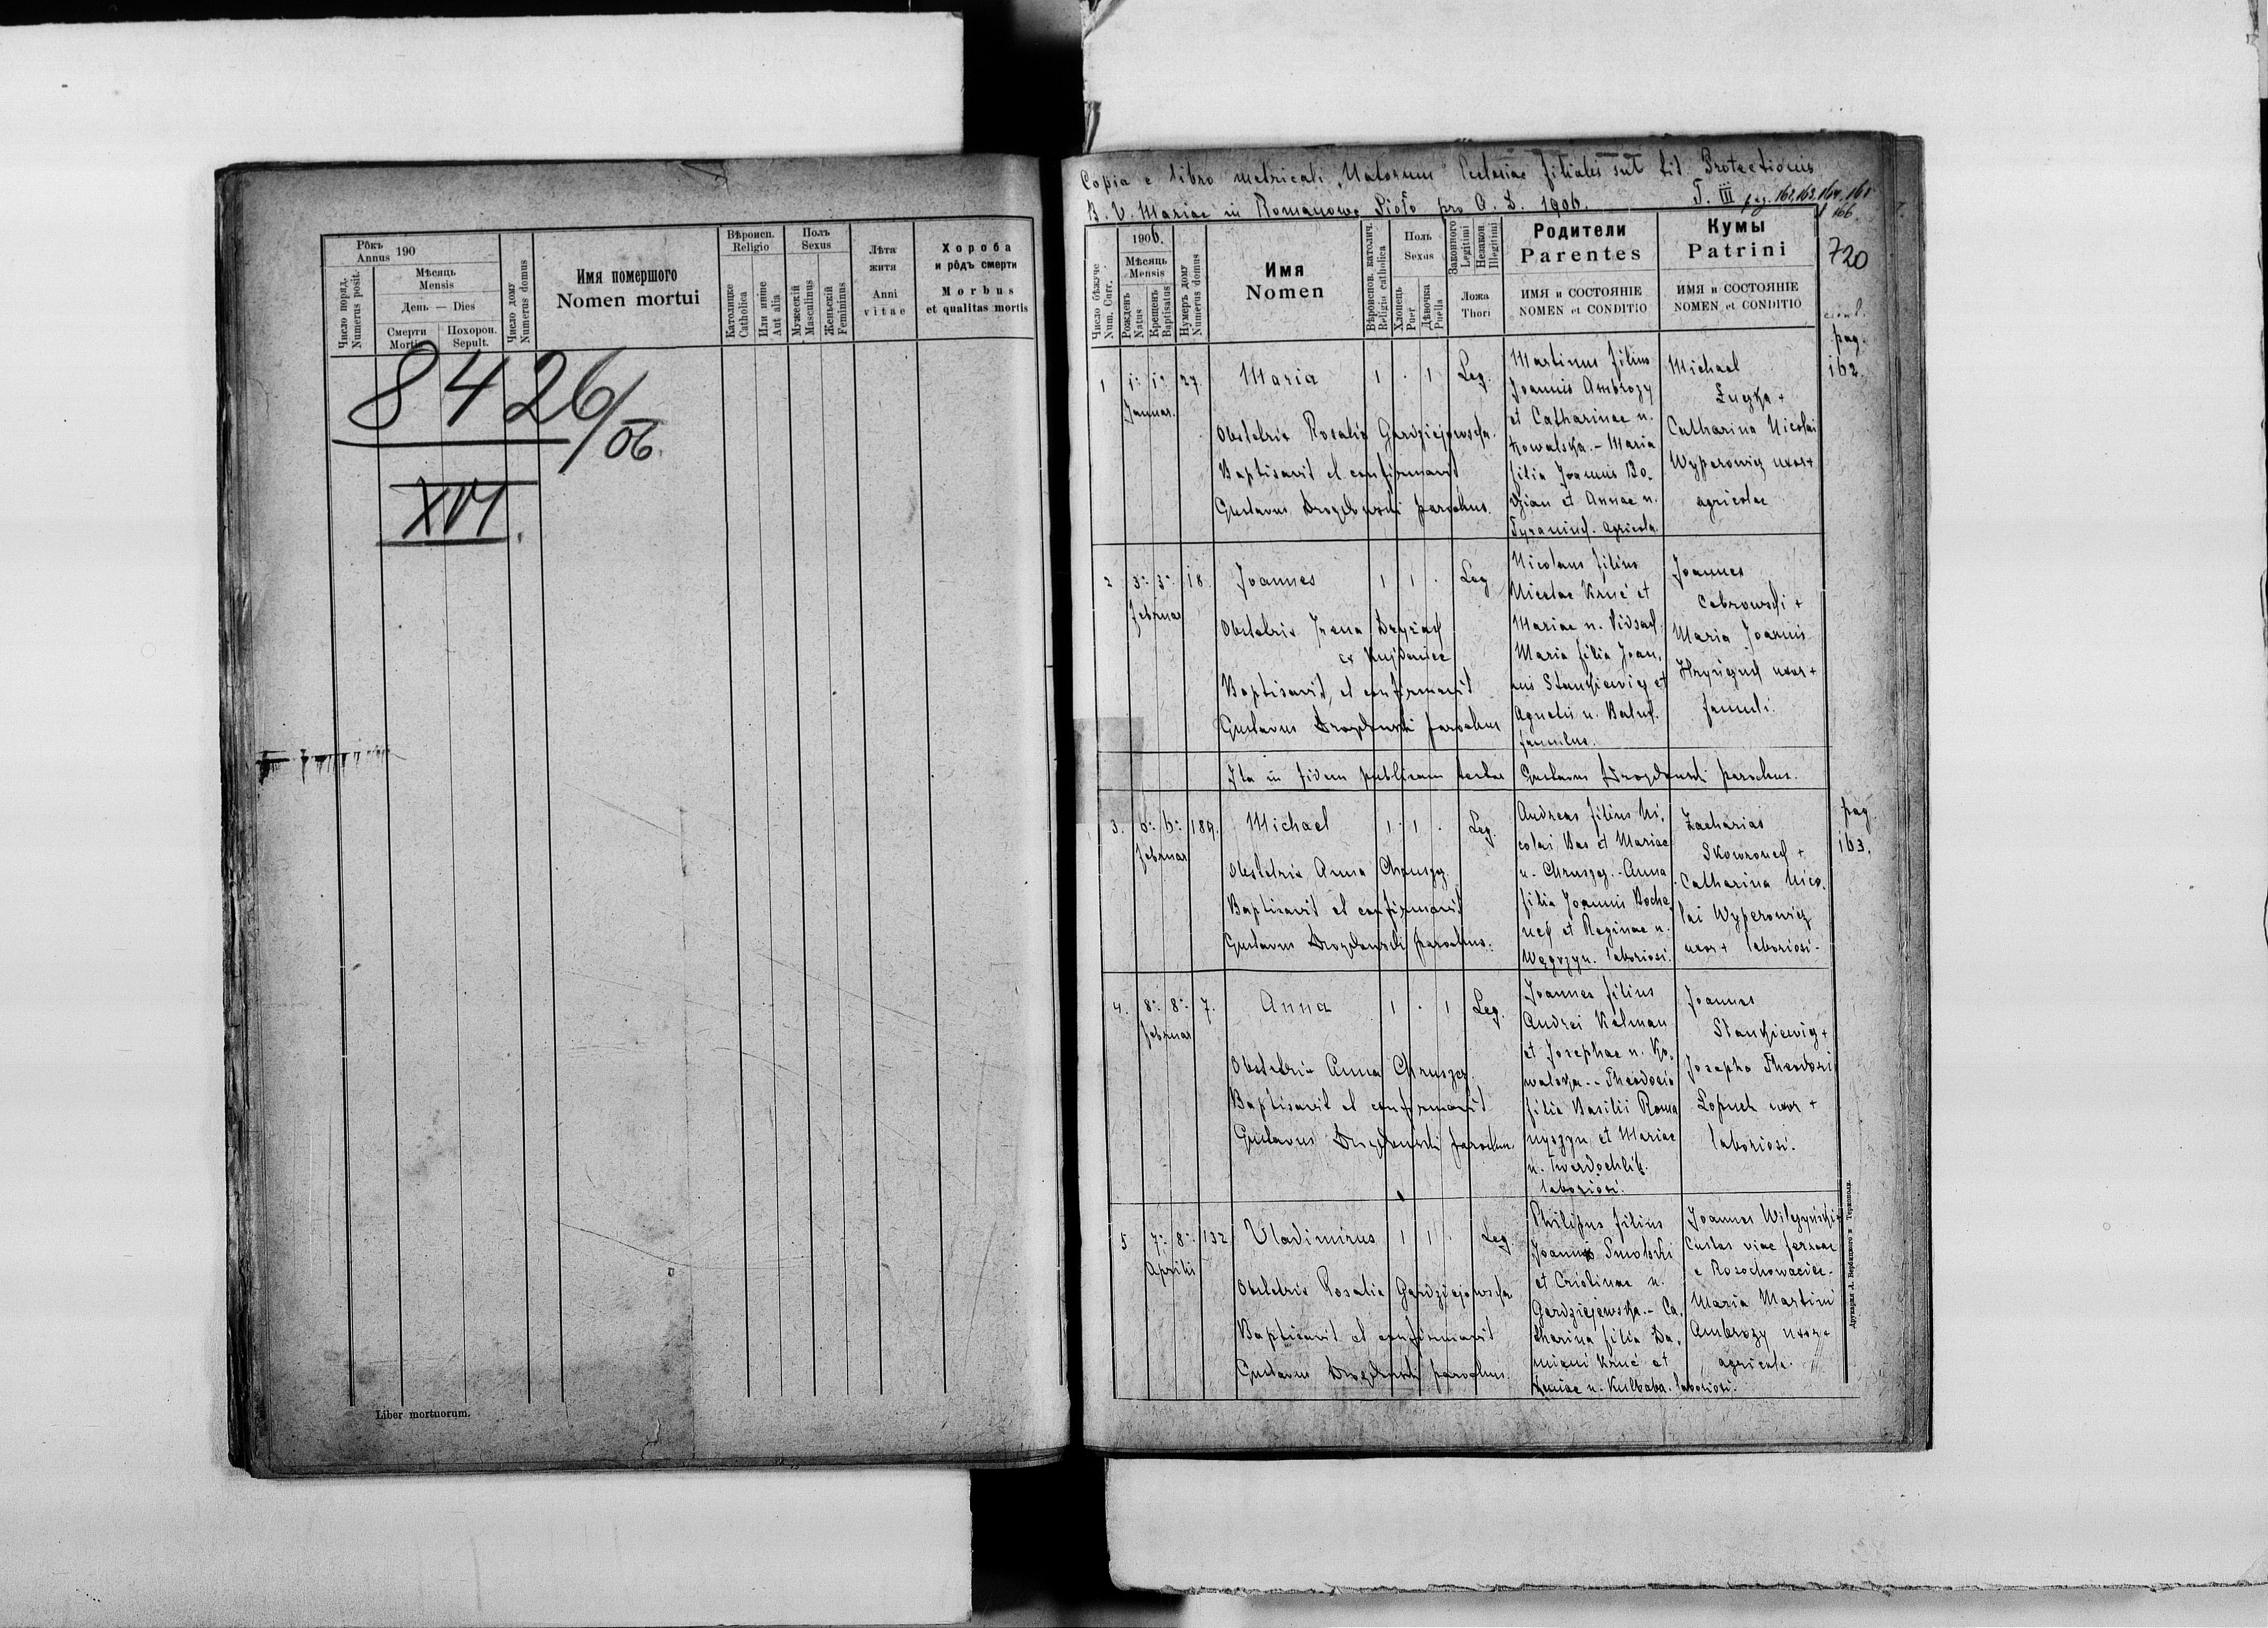 Рôкъ 190
Annus
Число поряд.
Numerus posit.
Мѣсяць
Mensis
День — Dies
Смерти
Mortis
Похорон.
Sepult.
Число дому
Numerus domus
Имя помершого
Nomen mortui
Вѣроисп.
Religio
Католицке
Catholica
Или инше
Aut alia
Полъ
Sexus
Мужескій
Masculinus
Женьскій
Femininus
Лѣта
житя
Anni
vitae
Хороба
и рôдъ смерти
Morbus
et qualitas mortis
8426/06
XVI.
Liber mortuorum.
Copia e libro metricali Natorum Ecclesiae filialis sub tit. Protectionis
B. V. Mariae in Romanowe Sioło pro A. D. 1906. T. III pag. 162, 163, 164, 165
166
720
Число бѣжуче
Num. Curr.
1906.
Мѣсяць
Mensis
Рожденъ
Natus
Крещенъ
Baptisatus
Нумеръ дому
Numerus domus
Имя
Nomen
Вѣроиспов. католич.
Religio catholica
Полъ
Sexus
Хлопець
Puer
Дѣвочка
Puella
Законного
Legitimi
Незакон.
Illegitimi
Ложа
Thori
Родители
Parentes
ИМЯ и СОСТОЯНІЕ
NOMEN et CONDITIO
Кумы
Patrini
ИМЯ и СОСТОЯНІЕ
NOMEN et CONDITIO
pag.
162.
1 1. 1. 27. Maria 1 . 1 Leg.
Januar.
Obstetrix Rosalia Gardziejewska
Baptisavit et confirmavit
Gustavus Drozdowski parochus.
Martinus filius
Joannis Ambrozy
et Catharinae n.
Kowalska. - Maria
filia Joannis Bo-
dzian et Annae n.
agricola
Michael
Catharina Nicolai
Wyperowicz uxor +
agricolae
2 3. 3. 18. Joannes 1 1 . Leg.
Februar
Obstetrix
Baptisavit et confirmavit
Gustavus Drozdowski parochus
Nicolaus filius
Nicolae Kruć et
Mariae n.
Maria filia Joan-
nis Stankiewicz et
famulus.
Joannes
Cebrowski +
Maria Joannis
uxor +
famuli.
Ita in fidem publicam testor Gustavus Drozdowski parochus.
pag.
163.
3. 6. 6. 189. Michael 1 1 . Leg.
Februar
Obstetrix Anna Chruszcz
Baptisavit et confirmavit
Gustavus Drozdowski parochus.
Andreas filius Ni-
colai Bas et Mariae
n. Chruszcz. - Anna
filia Joannis
et Reginae n.
Węgrzyn. laboriosi.
Zacharias
Skowronek +
Catharina Nico-
lai Wyperowicz
uxor + laboriosi.
4. 8. 8. 7. Anna 1 . 1 Leg.
Februar
Obstetrix Anna Chruszcz
Baptisavit et confirmavit
Gustavus Drozdowski parochus
Joannes filius
Andrei Kalman
et Josephae n. Ko-
walska. - Theodosia
filia Basilii Roma
nyszyn et Mariae
n. Twerdochlib.
laboriosi.
Joannes
Stankiewicz +
Josepha Theodori
Łopuch uxor +
laboriosi.
5 7. 8. 132 Vladimirus 1 1 . Leg
Aprilis
Obstetrix Rosalia Gardziejewska
Baptisavit et confirmavit
Gustavus Drozdowski parochus
Philipus filius
Joannis Smolski
et Cristinae n.
Gardziejewska. - Ca-
tharina filia Da-
miani Kruć et
n. Kulbaba. laboriosi.
Joannes Wilczyński +
Custos viae ferreae
e Rosochowaciec.
Maria Martini
Ambrozy uxor +
agricola.